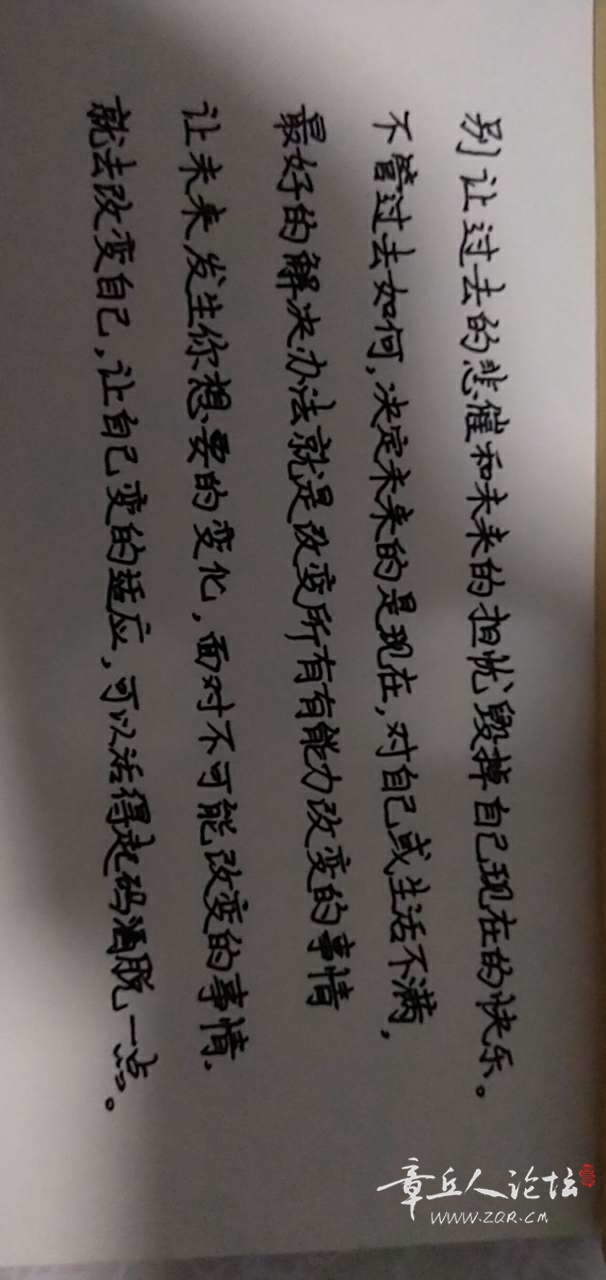 别让过去的悲催和未来的担忧毁掉自己现在的快乐。
不管过去如何,决定未来的是现在,对自己或生活不满,
最好的解决办法就是改变所有有能力改变的事情
让未来发生你想要的变化,面对不可能改变的事情.
就去改变自己,让自己变的适应,可以活得起码洒脱一点。
章丘人论坛
WWW.ZQR.CM